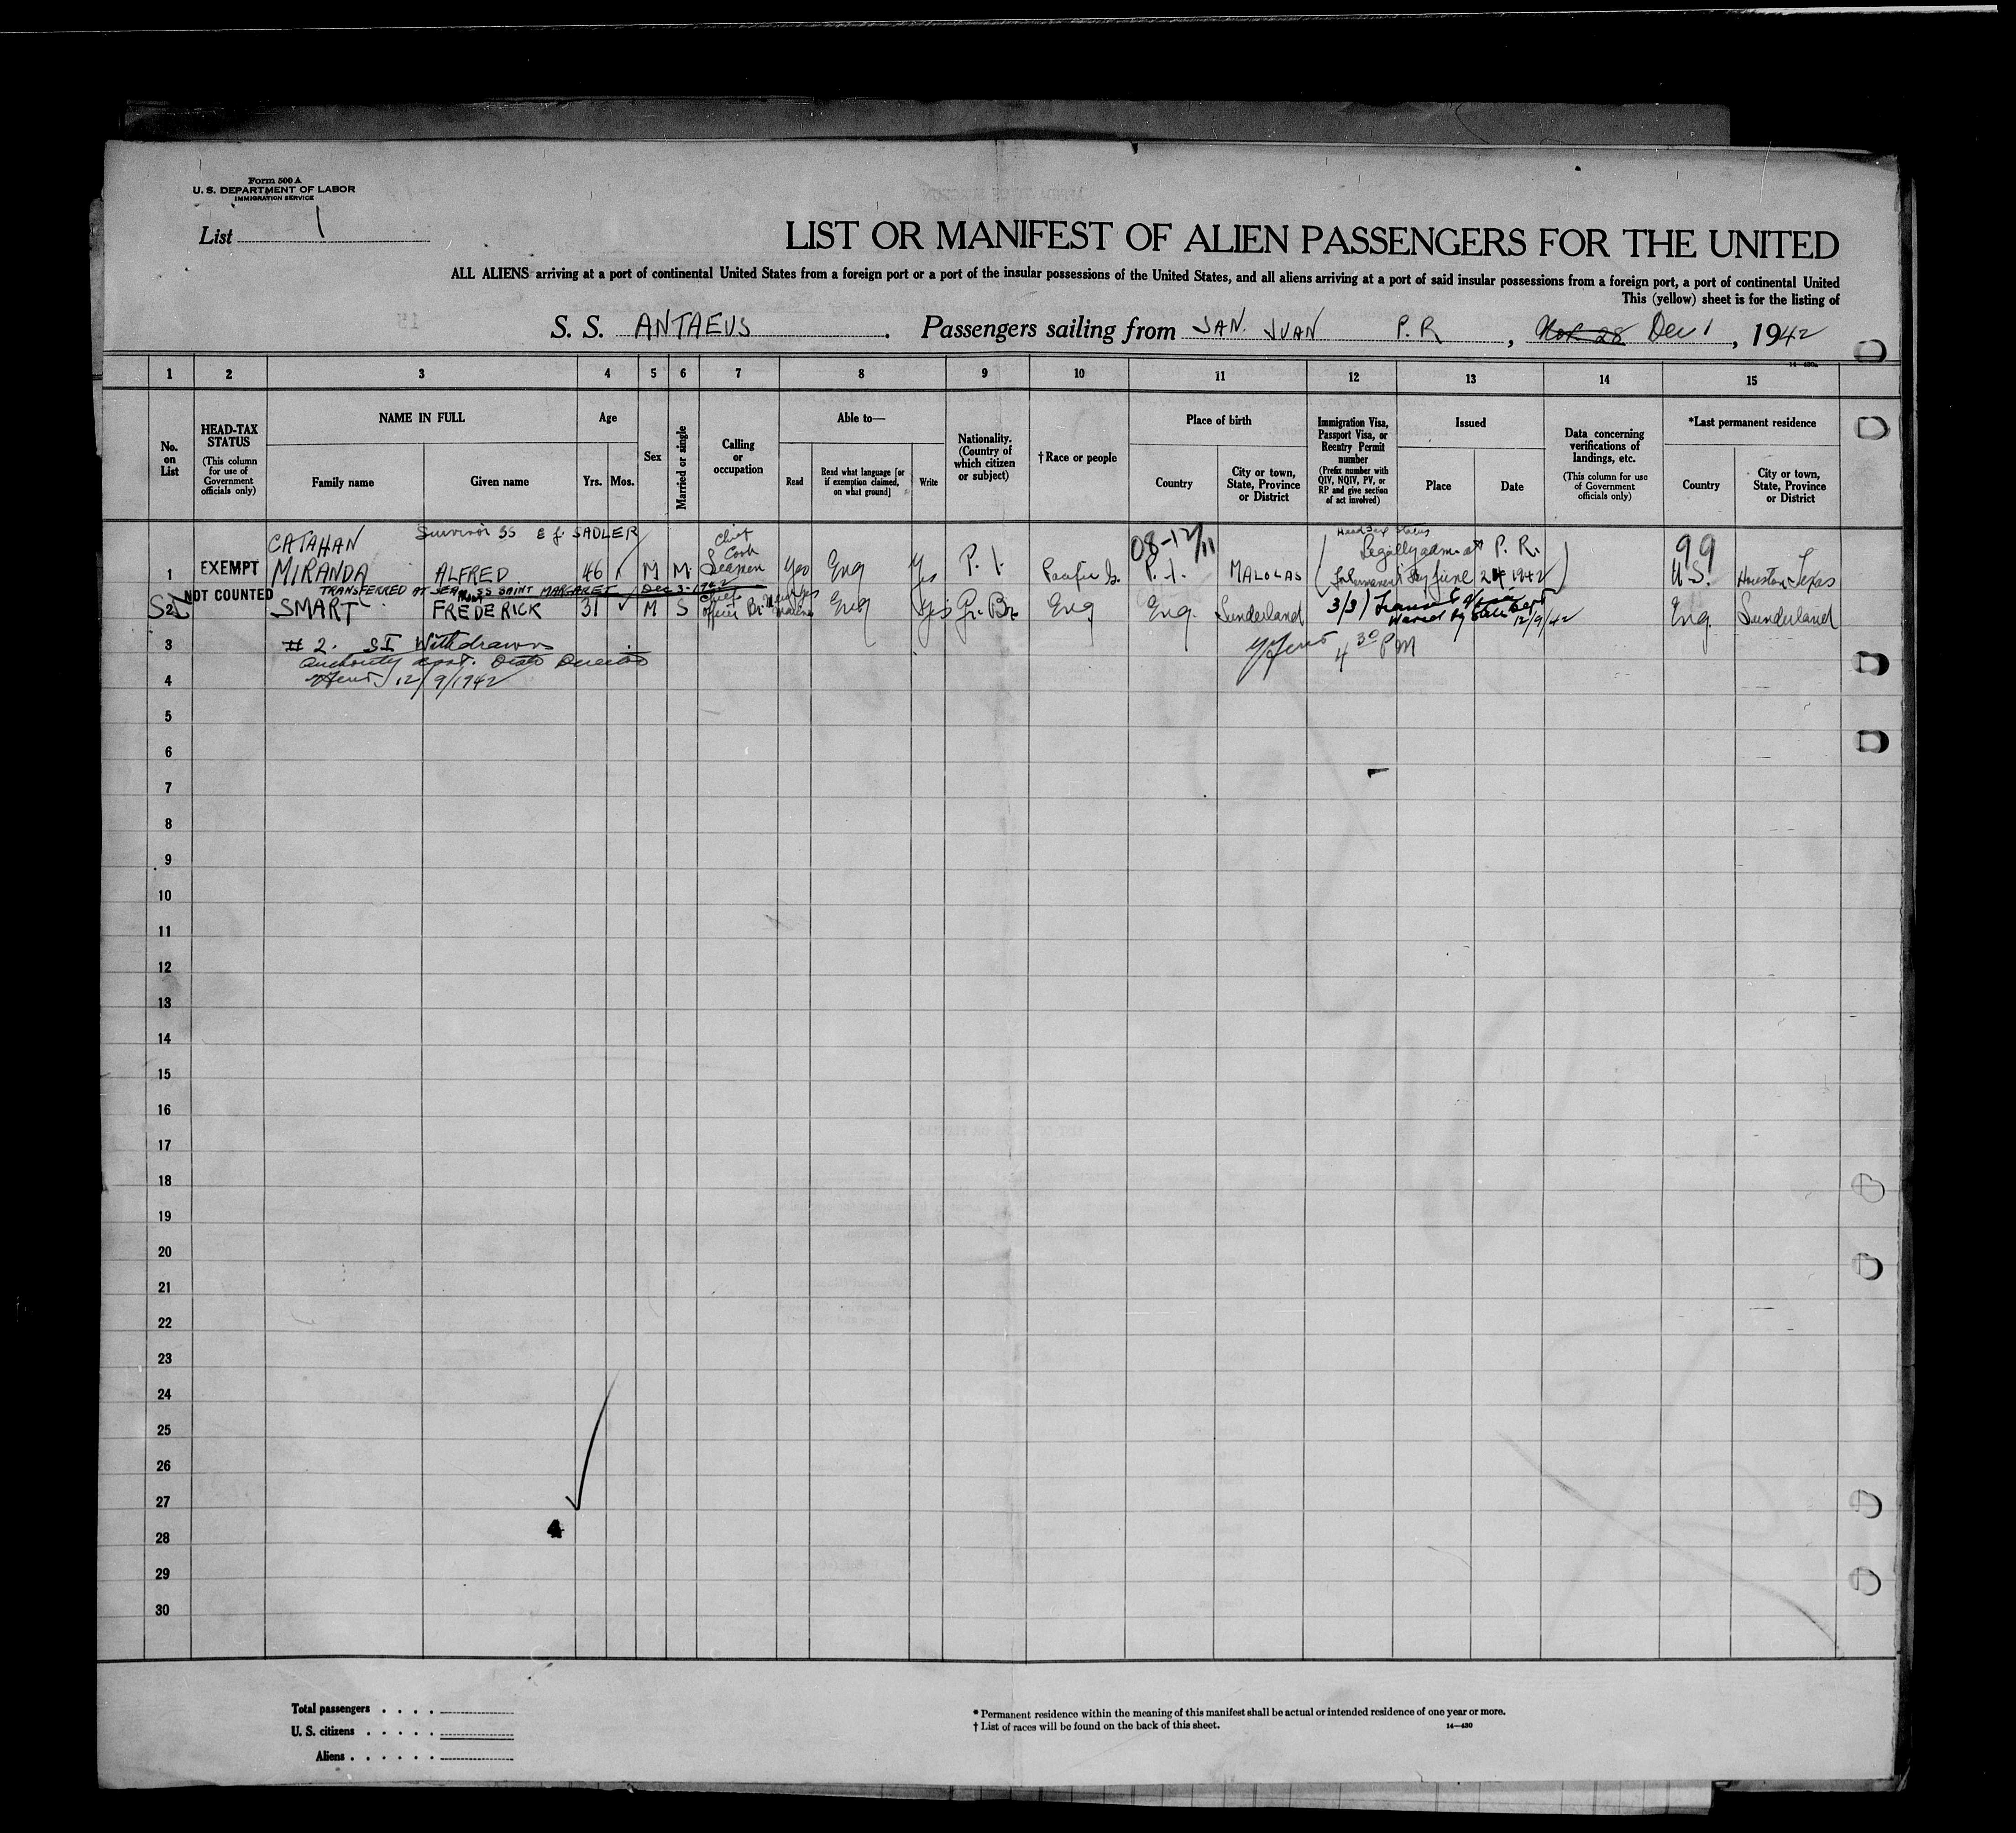 Form 500 A
U. S. DEPARTMENT OF LABOR
IMMIGRATION SERVICE
List 1
LIST OR MANIFEST OF ALIEN PASSENGERS FOR THE UNITED
ALL ALIENS arriving at a port of continental United States from a foreign port or a port of the insular possessions of the United States, and all aliens arriving at a port of said insular possessions from a foreign port, a port of continental United
This (yellow) sheet is for the listing of
S. S. ANTAEUS. Passengers sailing from SAN JUAN P. R, Nov 28 Dec 1, 1942
14—430a
1 2 3 4 5 6 7 8 9 10 11 12 13 14 15
No. on List
HEAD-TAX STATUS
(This column for use of Government officials only)
NAME IN FULL
Family name
Given name
Age
Yrs. Mos.
Sex
Married or single
Calling or occupation
Able to—
Read
Read what language [or if exemption claimed, on what ground]
Write
Nationality. (Country of which citizen or subject)
†Race or people
Place of birth
Country
City or town, State, Province or District
Immigration Visa, Passport Visa, or Reentry Permit number
(Prefix number with QIV, NQIV, PV, or RP and give section of act involved)
Issued
Place
Date
Data concerning verifications of landings, etc.
(This column for use of Government officials only)
*Last permanent residence
Country
City or town, State, Province or District
CATAHAN Survivor SS E J. SADLER Chief Cook 08-12/11 Head Tax Status 99
1 EXEMPT MIRANDA ALFRED 46 M M Seaman Yes Eng Yes P. I. Pacific Is. P. I. MALOLAS Legally adm. at P. R. June 24 1942 U.S. Houston Texas
NOT COUNTED TRANSFERRED AT SEA FROM SS SAINT MARGARET Dec 3-1942
2 SMART FREDERICK 31 M S Chief officer Br. Yes Eng Yes Gr. Br. Eng Eng. Sunderland 3/3) Transit Visa Waived by State Dept 12/9/42 Eng. Sunderland
3 # 2. SI Withdrawn 4 30 PM
4 12/9/1942
5
6
7
8
9
10
11
12
13
14
15
16
17
18
19
20
21
22
23
24
25
26
27
28
29
30
4
Total passengers . . . .
U. S. citizens . . . . .
Aliens . . . . . .
* Permanent residence within the meaning of this manifest shall be actual or intended residence of one year or more.
† List of races will be found on the back of this sheet.
14—430